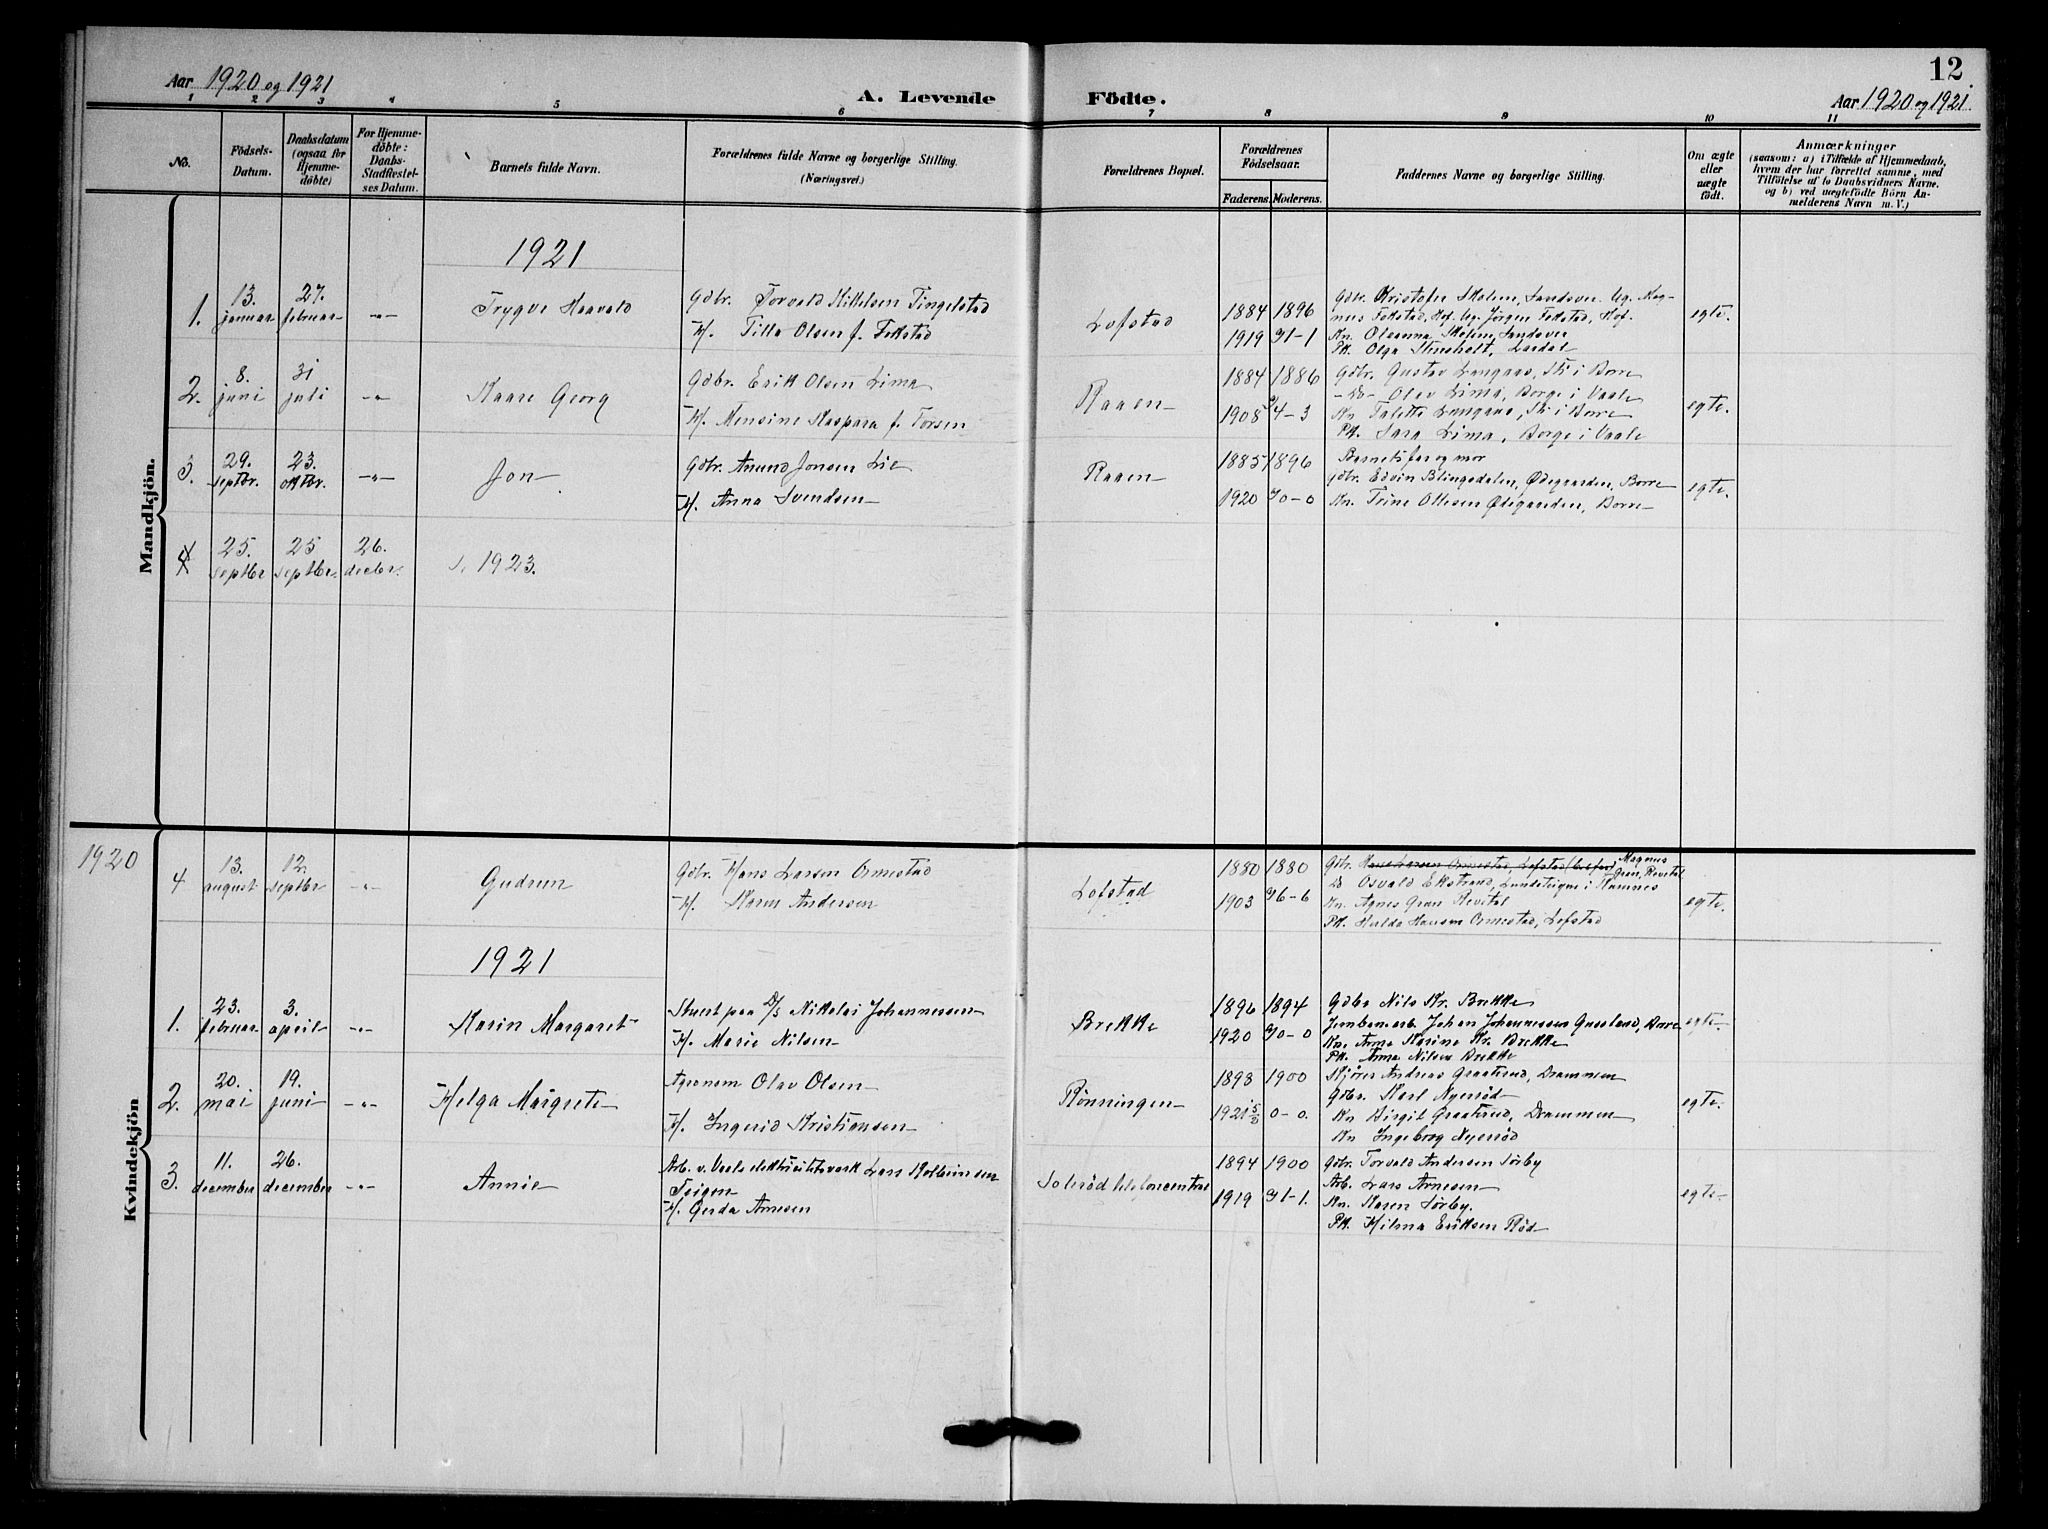 12
Aar 1920 og 1921
A. Levende Födte.
Aar 1920 og 1921
1 2 3 4 5 6 7 8 9 10 11
No.
Födsels-
Datum.
Daabsdatum
(ogsaa for
Hjemme-
döbte)
For Hjemme-
döbte:
Daabs-
Stadfæstel-
ses Datum.
Barnets fulde Navn.
Forældrenes fulde Navne og borgerlige Stilling.
(Næringsvei.)
Forældrenes Bopæl.
Forældrenes
Födselsaar.
Faderens. Moderens.
Faddernes Navne og borgerlige Stilling.
Om ægte
eller
uægte
födt.
Anmærkninger
(saasom: a) i Tilfælde af Hjemmedaab,
hvem der har forrettet samme, med
Tilföielse af to Daabsvidners Navne.
og b) ved uægtefödte Börn An-
melderens Navn m. V.)
Mandkjön.
1921
1.
13.
januar
27.
februar
-"-
Trygve Haavald
Gdbr. Torvald Kittelsen Tingelstad
H. Tilla Olsen f. Fekstad
Lofstad
1884 1896
1919 31-1
Gdbr. Kristofer Skolem, Sandsver. Ug. Mag-
nus Fekstad, Hof. Ug. Jørgen Fekstad, Hof.
Kn. Oleanna Skolem, Sandsver
Pk. Olga Stusholt, Lardal
egte.
2.
8.
juni
31
juli
-"-
Kaare Georg
Gdbr. Erik Olsen Lima
H. Mensine Kaspara f. Torsen
Raaen
1884 1886
1908 4-3
Gdbr. Gustav Langaas, Sk i Borre
-Do- Olav Lima, Borge i Vaale
Kn. Talette Langaas, Sk i Borre
Pk. Sara Lima, Borge i Vaale
egte.
3.
29.
septbr.
23.
oktbr.
-"-
Jon
Gdbr. Anund Jonsen Lie
H. Anna Svendsen
Raaen
1885 1896
1920 30-0
Barnets far og mor
gdbr. Edvin Blingsdalen, Ødegaarden, Borre
Kn. Trine Ollesen Ødegaarden, Borre
egte.
4
25.
septbr
25
septbr.
26.
decbr.
s. 1923.
Kvindekjön
1920
4
13.
august
12.
septbr
-"-
Gudrun
Gdbr. Hans Larsen Ormestad
H. Karen Andersen
Lofstad
1880 1880
1903 36-6
Gdbr. Hans Larsen Ormestad, Lofstad Magnus
Gran, Revital
Do Osvald Ekstrand, Lundeteigen i Ramnes
Kn. Agnes Gran Revital
Pk. Hulda Hansen Ormestad, Lofstad
egte.
1921
1.
23.
februar
3.
april
-"-
Karin Margaret
Stuert paa D/S Nikolai Johannessen
H. Marie Nilsen
Brekke
1896 1894
1920 30-0
Gdbr Nils Kr. Brekke
Jernbanearb. Johan Johannessen Gaaslund, Borre
Kn. Anna Karine Kr. Brekke
Pk. Anna Nilsen Brekke
egte
2.
20.
mai
19.
juni
-"-
Helga Margrete
Agronom Olav Olsen
H. Ingerid Kristiansen
Rønningen
1893 1900
1921 5/2 0-0.
Kjører Andreas Graatrud, Drammen
Gdbr. Karl Nyerrød
Kn Birgit Graatrud, Drammen
Kn Ingeborg Nyerrød
egte.
3.
11.
december
26.
december
-"-
Annie
Arb. v. Vaale elektricitetsverk Lars Kolbeinsen
Teigen
H. Gerda Arnesen
Solerød telefoncentral
1894 1900
1919 31-1.
Gdbr. Torvald Andersen Sørby
Arb. Lars Arnesen
Kn. Karen Sørby.
Pk. Hilma Eriksen Rød
egte